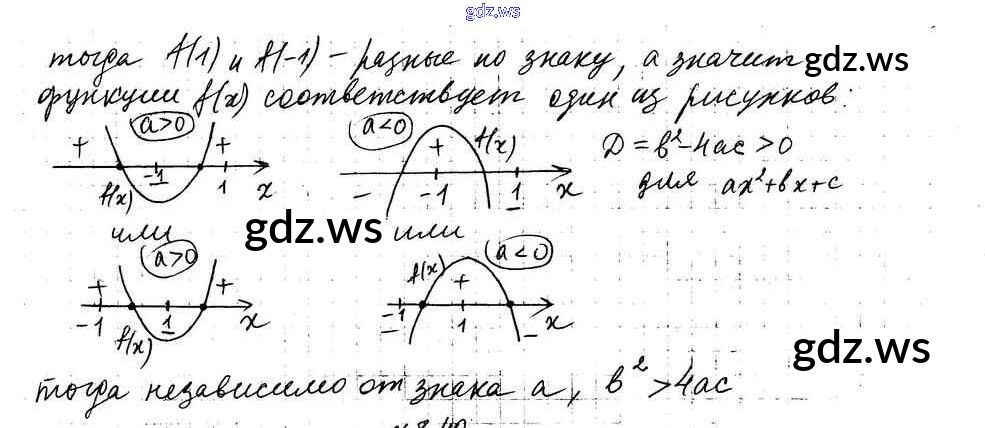 gdz.ws
тогда f(1) и f(-1) - разные по знаку, а значит
gdz.ws
функции f(x) соответствует один из рисунков:
a>0 a<0
+ + + f(x) D = b²-4ac >0
f(x) -1 1 x - -1 1 x для ax²+bx+c
или gdz.ws или
a>0 a<0
+ + f(x) +
-1 1 x -1 1 x
f(x) - -
gdz.ws
тогда независимо от знака a, b² >4ac